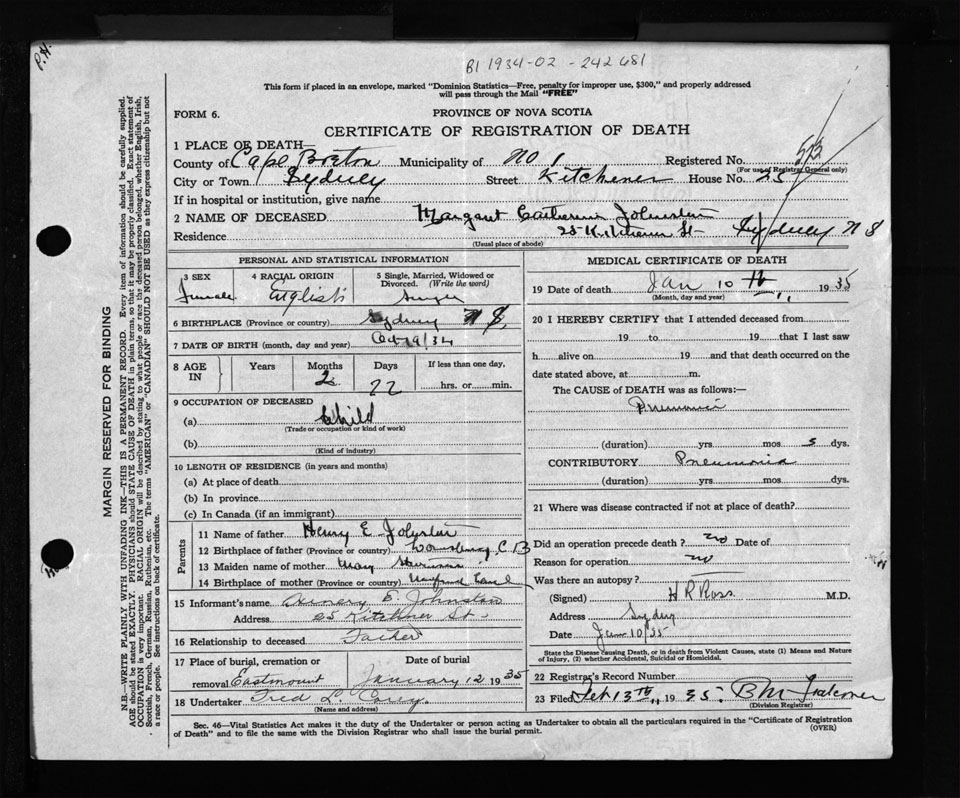 P.H.
B1 1934-02 - 242 681
This form if placed in an envelope, marked "Dominion Statistics—Free, penalty for improper use, $300," and properly addressed
will pass through the Mail "FREE"
FORM 6.
PROVINCE OF NOVA SCOTIA
CERTIFICATE OF REGISTRATION OF DEATH
1 PLACE OF DEATH
County of Cape Breton Municipality of No 1 Registered No. 513
(For use of Registrar General only)
City or Town Sydney Street Kitchener House No. 25
If in hospital or institution, give name
2 NAME OF DECEASED Margaret Catherine Johnston
Residence 25 Kitchener St Sydney N S
(Usual place of abode)
PERSONAL AND STATISTICAL INFORMATION
3 SEX 4 RACIAL ORIGIN 5 Single, Married, Widowed or
Divorced. (Write the word)
Female English Single
6 BIRTHPLACE (Province or country) Sydney N S.
7 DATE OF BIRTH (month, day and year) Oct 19/34
8 AGE IN Years Months Days If less than one day,
2 22 hrs. or min.
9 OCCUPATION OF DECEASED
(a) Child
(Trade or occupation or kind of work)
(b)
(Kind of industry)
10 LENGTH OF RESIDENCE (in years and months)
(a) At place of death
(b) In province
(c) In Canada (if an immigrant)
Parents
11 Name of father Henry E. Johnston
12 Birthplace of father (Province or country) C B
13 Maiden name of mother May
14 Birthplace of mother (Province or country) Newfound Land
15 Informant's name E. Johnston
Address 25 Kitchener St.
16 Relationship to deceased Father
17 Place of burial, cremation or Date of burial
removal Eastmount January 12 1935
18 Undertaker Fred L.
(Name and address)
MEDICAL CERTIFICATE OF DEATH
19 Date of death Jan 10 th 1935
(Month, day and year)
20 I HEREBY CERTIFY that I attended deceased from
19 to 19 that I last saw
h alive on 19 and that death occurred on the
date stated above, at m.
The CAUSE of DEATH was as follows:—
Pneumonia
(duration) yrs. mos. 5 dys.
CONTRIBUTORY Pneumonia
(duration) yrs. mos. dys.
21 Where was disease contracted if not at place of death?
Did an operation precede death? no Date of
Reason for operation no
Was there an autopsy?
(Signed) H R Ross M.D.
Address Sydney
Date Jan 10/35
State the Disease causing Death, or in death from Violent Causes, state (1) Means and Nature
of Injury, (2) whether Accidental, Suicidal or Homicidal.
22 Registrar's Record Number
23 Filed Feb 13th 1935 B M Falconer
(Division Registrar)
Sec. 46—Vital Statistics Act makes it the duty of the Undertaker or person acting as Undertaker to obtain all the particulars required in the "Certificate of Registration
of Death" and to file the same with the Division Registrar who shall issue the burial permit.
(OVER)
MARGIN RESERVED FOR BINDING
N.B.—WRITE PLAINLY WITH UNFADING INK—THIS IS A PERMANENT RECORD. Every item of information should be carefully supplied.
AGE should be stated EXACTLY. PHYSICIANS should STATE CAUSE OF DEATH in plain terms, so that it may be properly classified. Exact statement of
OCCUPATION is very important. RACIAL ORIGIN will be described by stating to what people or race the deceased person belonged, whether English, Irish,
Scottish, French, German, Russian, Ruthenian, etc. The terms "AMERICAN" or "CANADIAN" SHOULD NOT BE USED as they express citizenship but not
a race or people. See instructions on back of certificate.